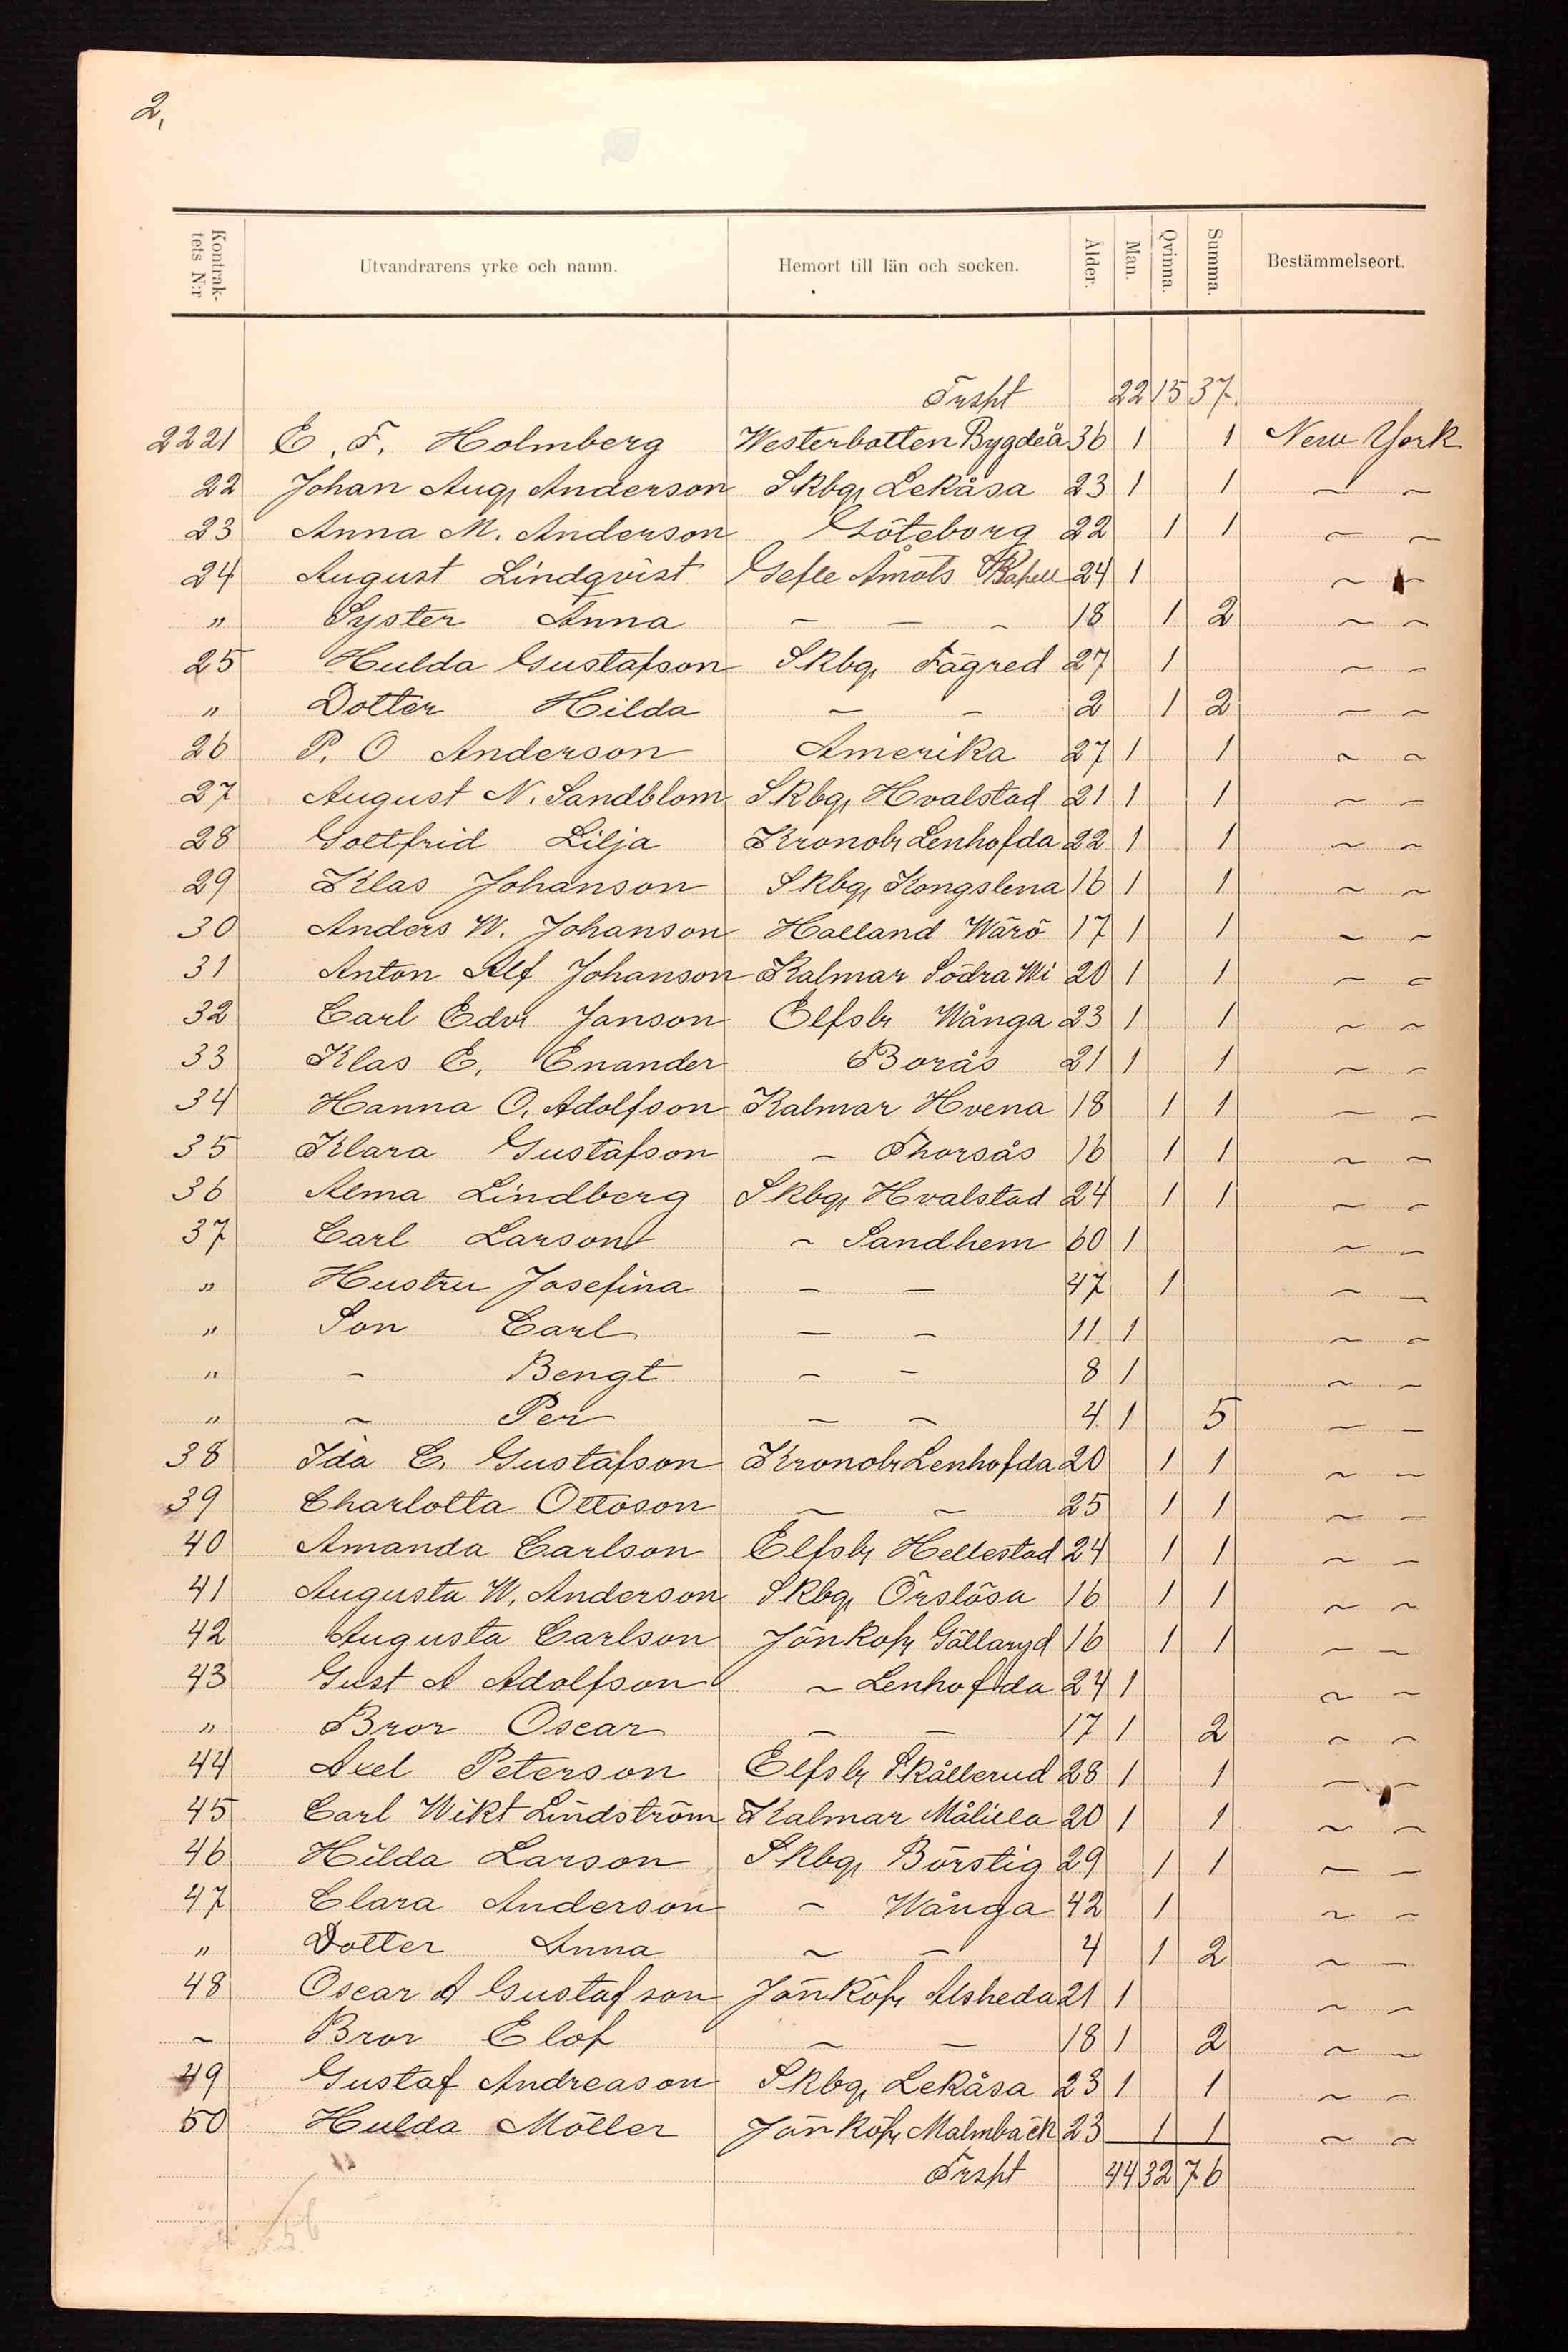 2,
Kontrak-
tets N:r
Utvandrarens yrke och namn.
Hemort till län och socken.
Ålder.
Man.
Qvinna.
Summa.
Bestämmelseort.
Trspt 22 15 37.
2221 E. F. Holmberg Westerbotten Bygdeå 36 1 1 New York
22 Johan Aug, Anderson Skbg, Lekåsa 23 1 1 ~ ~
23 Anna M. Anderson Göteborg 22 1 1 ~ ~
24 August Lindqvist Gefle Åmots Kapell 24 1 ~ ~
" Syster Anna ~ — ~ 18 1 2 ~ ~
25 Hulda Gustafson Skbg, Fägred 27 1 ~ ~
" Dotter Hilda ~ ~ 2 1 2 ~ ~
26 P. O Anderson Amerika 27 1 1 ~ ~
27 August N. Sandblom Skbg, Hvalstad 21 1 1 ~ ~
28 Gottfrid Lilja Kronobr Lenhofda 22 1 1 ~ ~
29 Klas Johanson Skbg, Kongslena 16 1 1 ~ ~
30 Anders W. Johanson Halland Wärö 17 1 1 ~ ~
31 Anton Alf Johanson Kalmar Södra Wi 20 1 1 ~ ~
32 Carl Edv Janson Elfsbr Wånga 23 1 1 ~ ~
33 Klas E. Enander Borås 21 1 1 ~ ~
34 Hanna O. Adolfson Kalmar Hvena 18 1 1 ~ ~
35 Klara Gustafson ~ Thorsås 16 1 1 ~ ~
36 Alma Lindberg Skbg, Hvalstad 24 1 1 ~ ~
37 Carl Larson ~ Sandhem 60 1 ~ ~
" Hustru Josefina ~ — 47 1 ~ ~
" Son Carl — ~ 11 1 ~ ~
" ~ Bengt ~ ~ 8 1 ~ ~
" ~ Per ~ ~ 4 1 5 ~ ~
38 Ida C. Gustafson Kronobr Lenhofda 20 1 1 ~ ~
39 Charlotta Ottoson ~ ~ 25 1 1 ~ ~
40 Amanda Carlson Elfsbr Hellestad 24 1 1 ~ ~
41 Augusta W. Anderson Skbg, Örslösa 16 1 1 ~ ~
42 Augusta Carlson Jönköp, Gällaryd 16 1 1 ~ ~
43 Gust A Adolfson ~ Lenhofda 24 1 ~ ~
" Bror Oscar ~ — 17 1 2 ~ ~
44 Axel Peterson Elfsbr Skållerud 28 1 1 ~ ~
45 Carl Wikt Lindström Kalmar Målilla 20 1 1 ~ ~
46 Hilda Larson Skbg, Börstig 29 1 1 ~ ~
47 Clara Anderson ~ Wånga 42 1 ~ ~
" Dotter Anna ~ ~ 4 1 2 ~ ~
48 Oscar A Gustafson Jönköp, Alsheda 21 1 ~ ~
~ Bror Elof ~ — 18 1 2 ~ ~
49 Gustaf Andreason Skbg, Lekåsa 23 1 1 ~ ~
50 Hulda Möller Jönköp, Malmbäck 23 1 1 ~ ~
Trspt 44 32 76